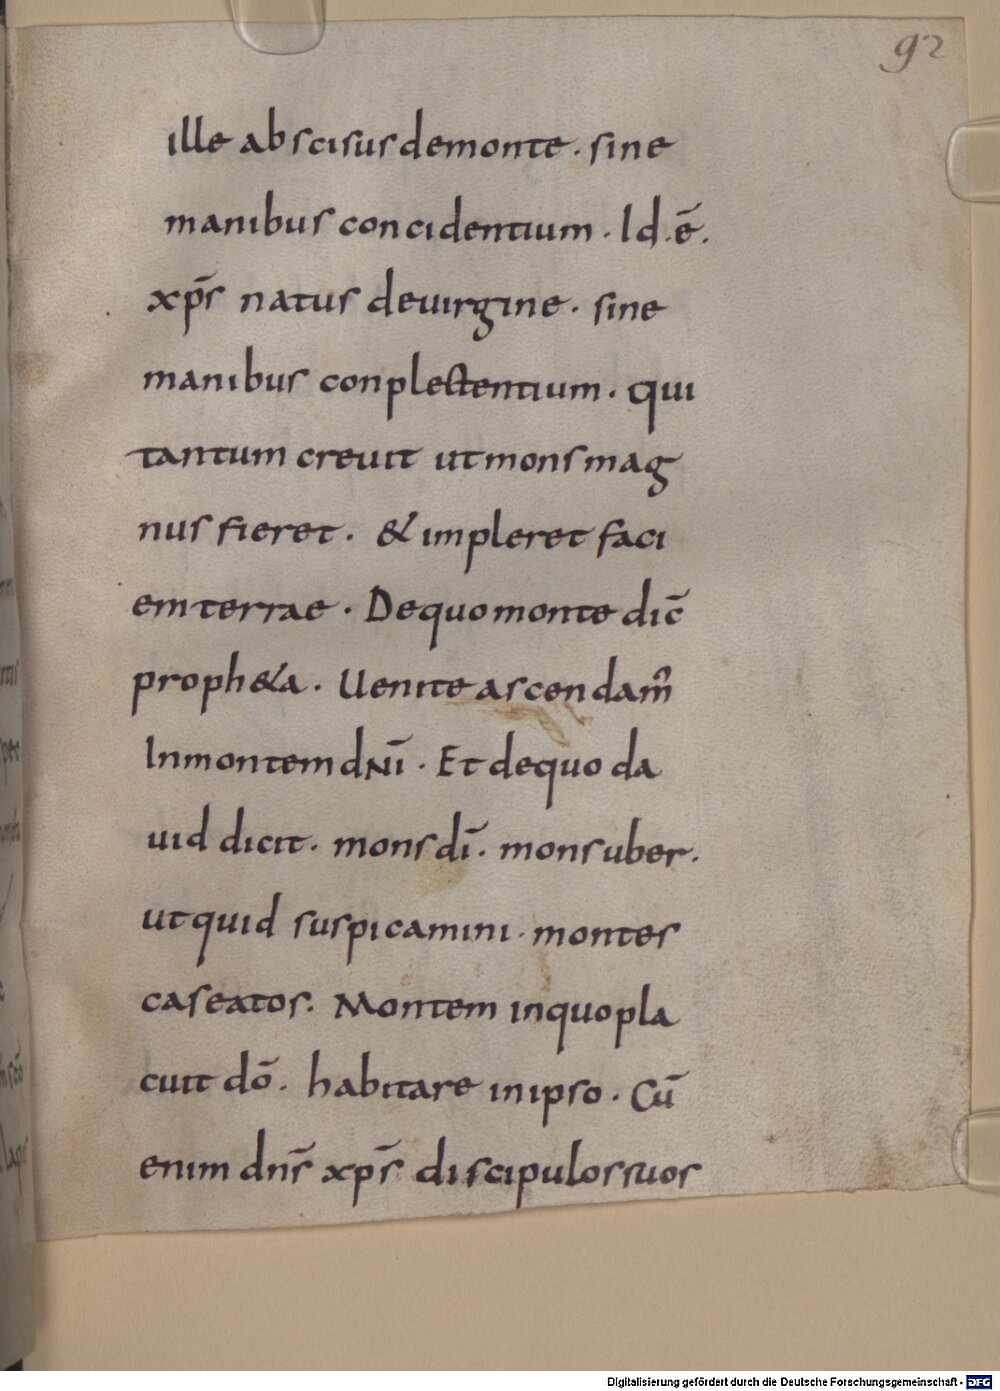 92
ille abscisus demonte · sine
manibus concidentium · Id·ē·
xp̄s natus deuirgine · sine
manibus conplectentium · qui
tantum creuit utmons mag
nus fieret · & impleret faci
em terrae · Dequomonte dic̄
proph&a · Uenite ascendam̄
Inmontem dn̄i · Et dequo da
uid dicit · mons dī · mons uber ·
utquid suspicamini · montes
caseatos · Montem inquo pla
cuit dō · habitare inipso · Cū
enim dn̄s xp̄s discipulos suos
Digitalisierung gefördert durch die Deutsche Forschungsgemeinschaft - DFG